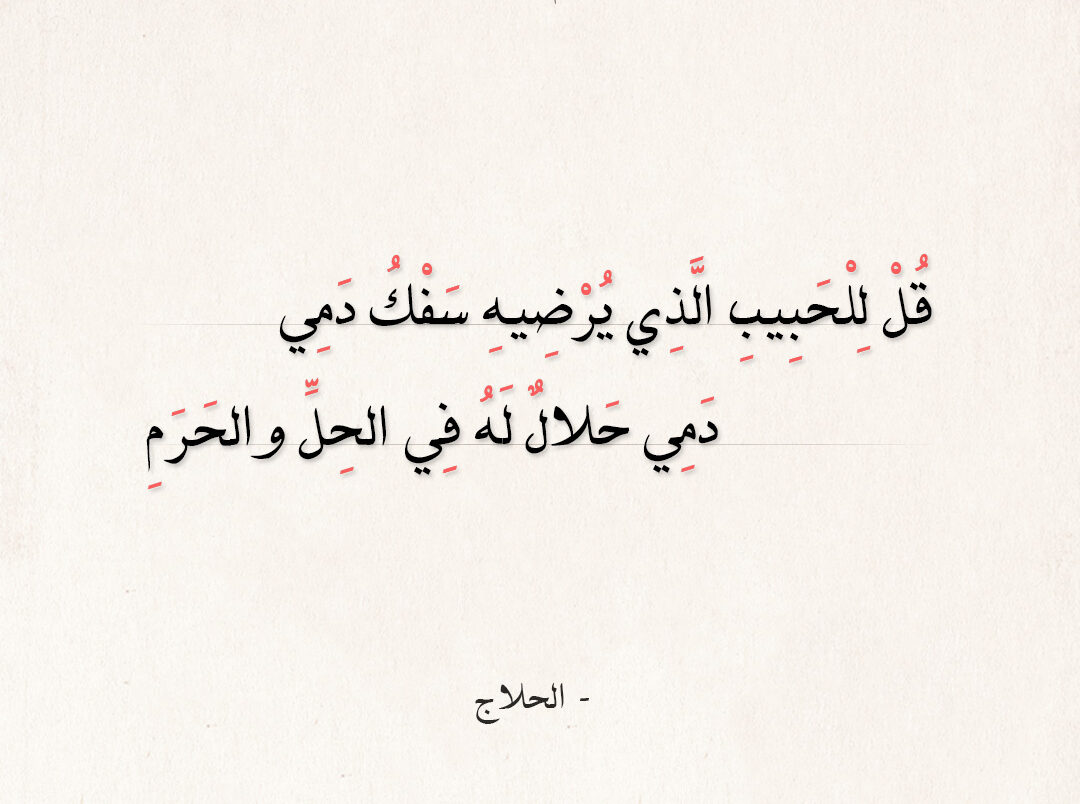 قُلْ لِلْحَبِيبِ الَّذِي يُرْضِيهِ سَفْكُ دَمِي
دَمِي حَلالٌ لَهُ فِي الحِلِّ و الحَرَمِ
- الحلاج